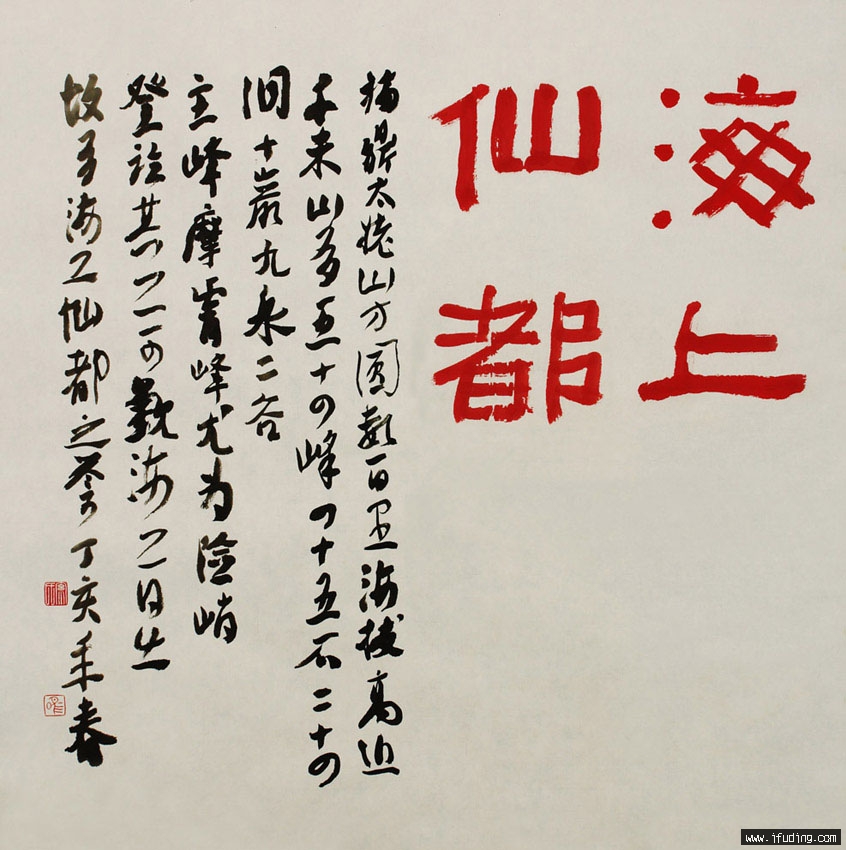 海上
仙都
福鼎太姥山方圓數百里海拔高近
千米山有五十四峰四十五石二十四
洞十岩九泉二谷
主峰摩霄峰尤为险峭
登临其上可觀海上日出
故有海上仙都之誉丁亥年春
www.ifuding.com